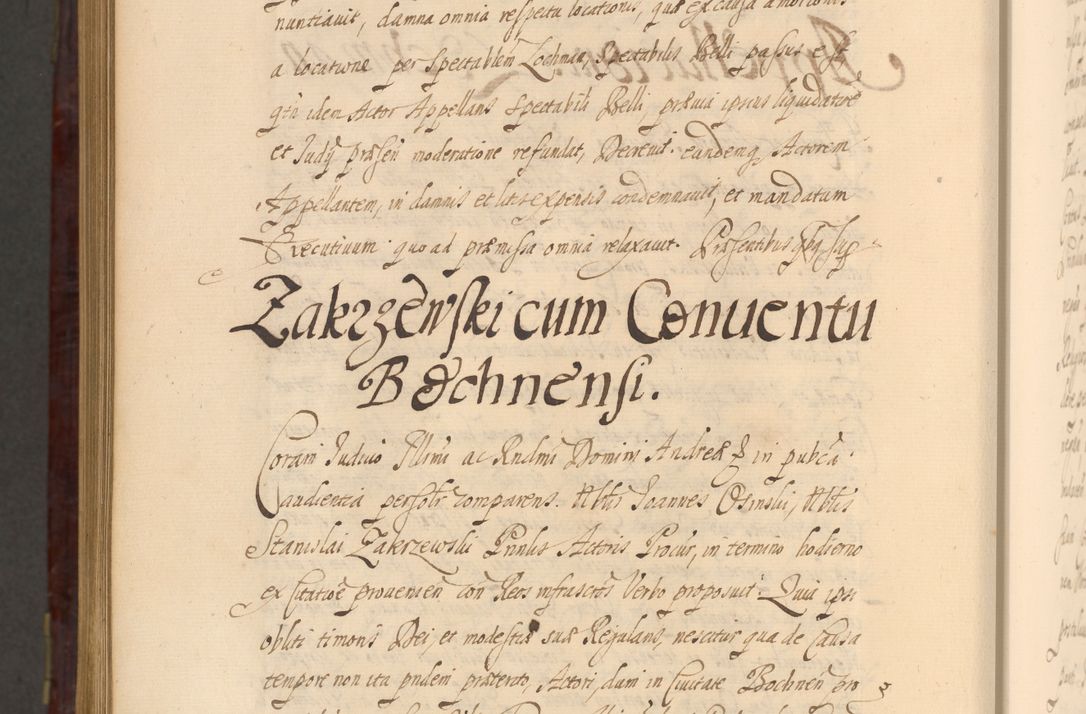 nuntiauit, damna omnia respectu locationis, quæ ex causa amotionis
a locatione per Spectabilem Lochman, Spectabilis Belli passus est
qtū idem Actor Appellans Spectabili Belli, præuia ipsius liquidatōe
et Judӱ præsen̄ moderatione refundat, Decreuit. eundemq, Actorem
Appellantem, in damnis et litis expensis condemnauit, et mandatum
Executiuum quo ad præmissa omnia relaxauit. Præsentibus
Zakrzewski cum Conuentu
Bochnensi.
Coram Judicio Illmi ac Rndmi Domini Andreæ in pubca
audientia personlr comparens. Nblis Joannes Osinski, Nblis
Stanislai Zakrzewski Prinlis Actoris Procur, in termino hodierno
ex Citatōe prouenien̄ con̄ Reos infrascros Verbo proposuit. Quia ipsi
obliti timoris Dei, et modestiæ suæ Regularis, nescitur qua de causa
tempore non ita pridem præterito, Actori, dum in Ciuitate Bochnen̄ pro